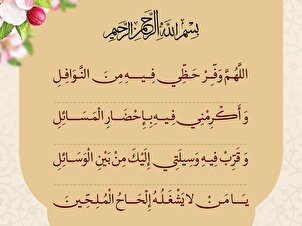 بِسْمِ اللهِ الرَّحْمنِ الرَّحِیمِ
اللَّهُمَّ وَفِّرْ حَظِّي فِيهِ مِنَ النَّوَافِلِ
وَ أَكْرِمْنِي فِيهِ بِإِحْضَارِ الْمَسَائِلِ
وَ قَرِّبْ فِيهِ وَسِيلَتِي إِلَيْكَ مِنْ بَيْنِ الْوَسَائِلِ
يَا مَنْ لا يَشْغَلُهُ إِلْحَاحُ الْمُلِحِّينَ